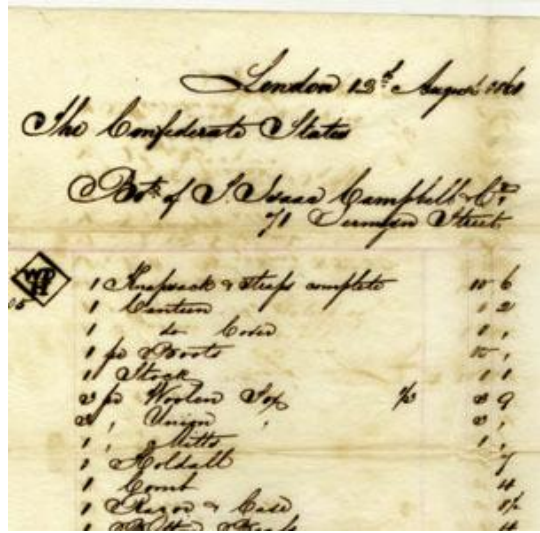 London 12th August 1861
The Confederate States
Bot. of S. Isaac Campbell & Co.
71 Jermyn Street
1 Knapsack & straps complete 10 6
1 Canteen 1 2
1 do Cover 1 ,
1 pr Boots 10 ,
1 Stock 1 1
3 pr Woolen Sox 3 9
2 , Union , 2 ,
1 , Mitts 1 ,
1 Holdall 7
1 Comb 4
1 Razor & Case
1 Button 4